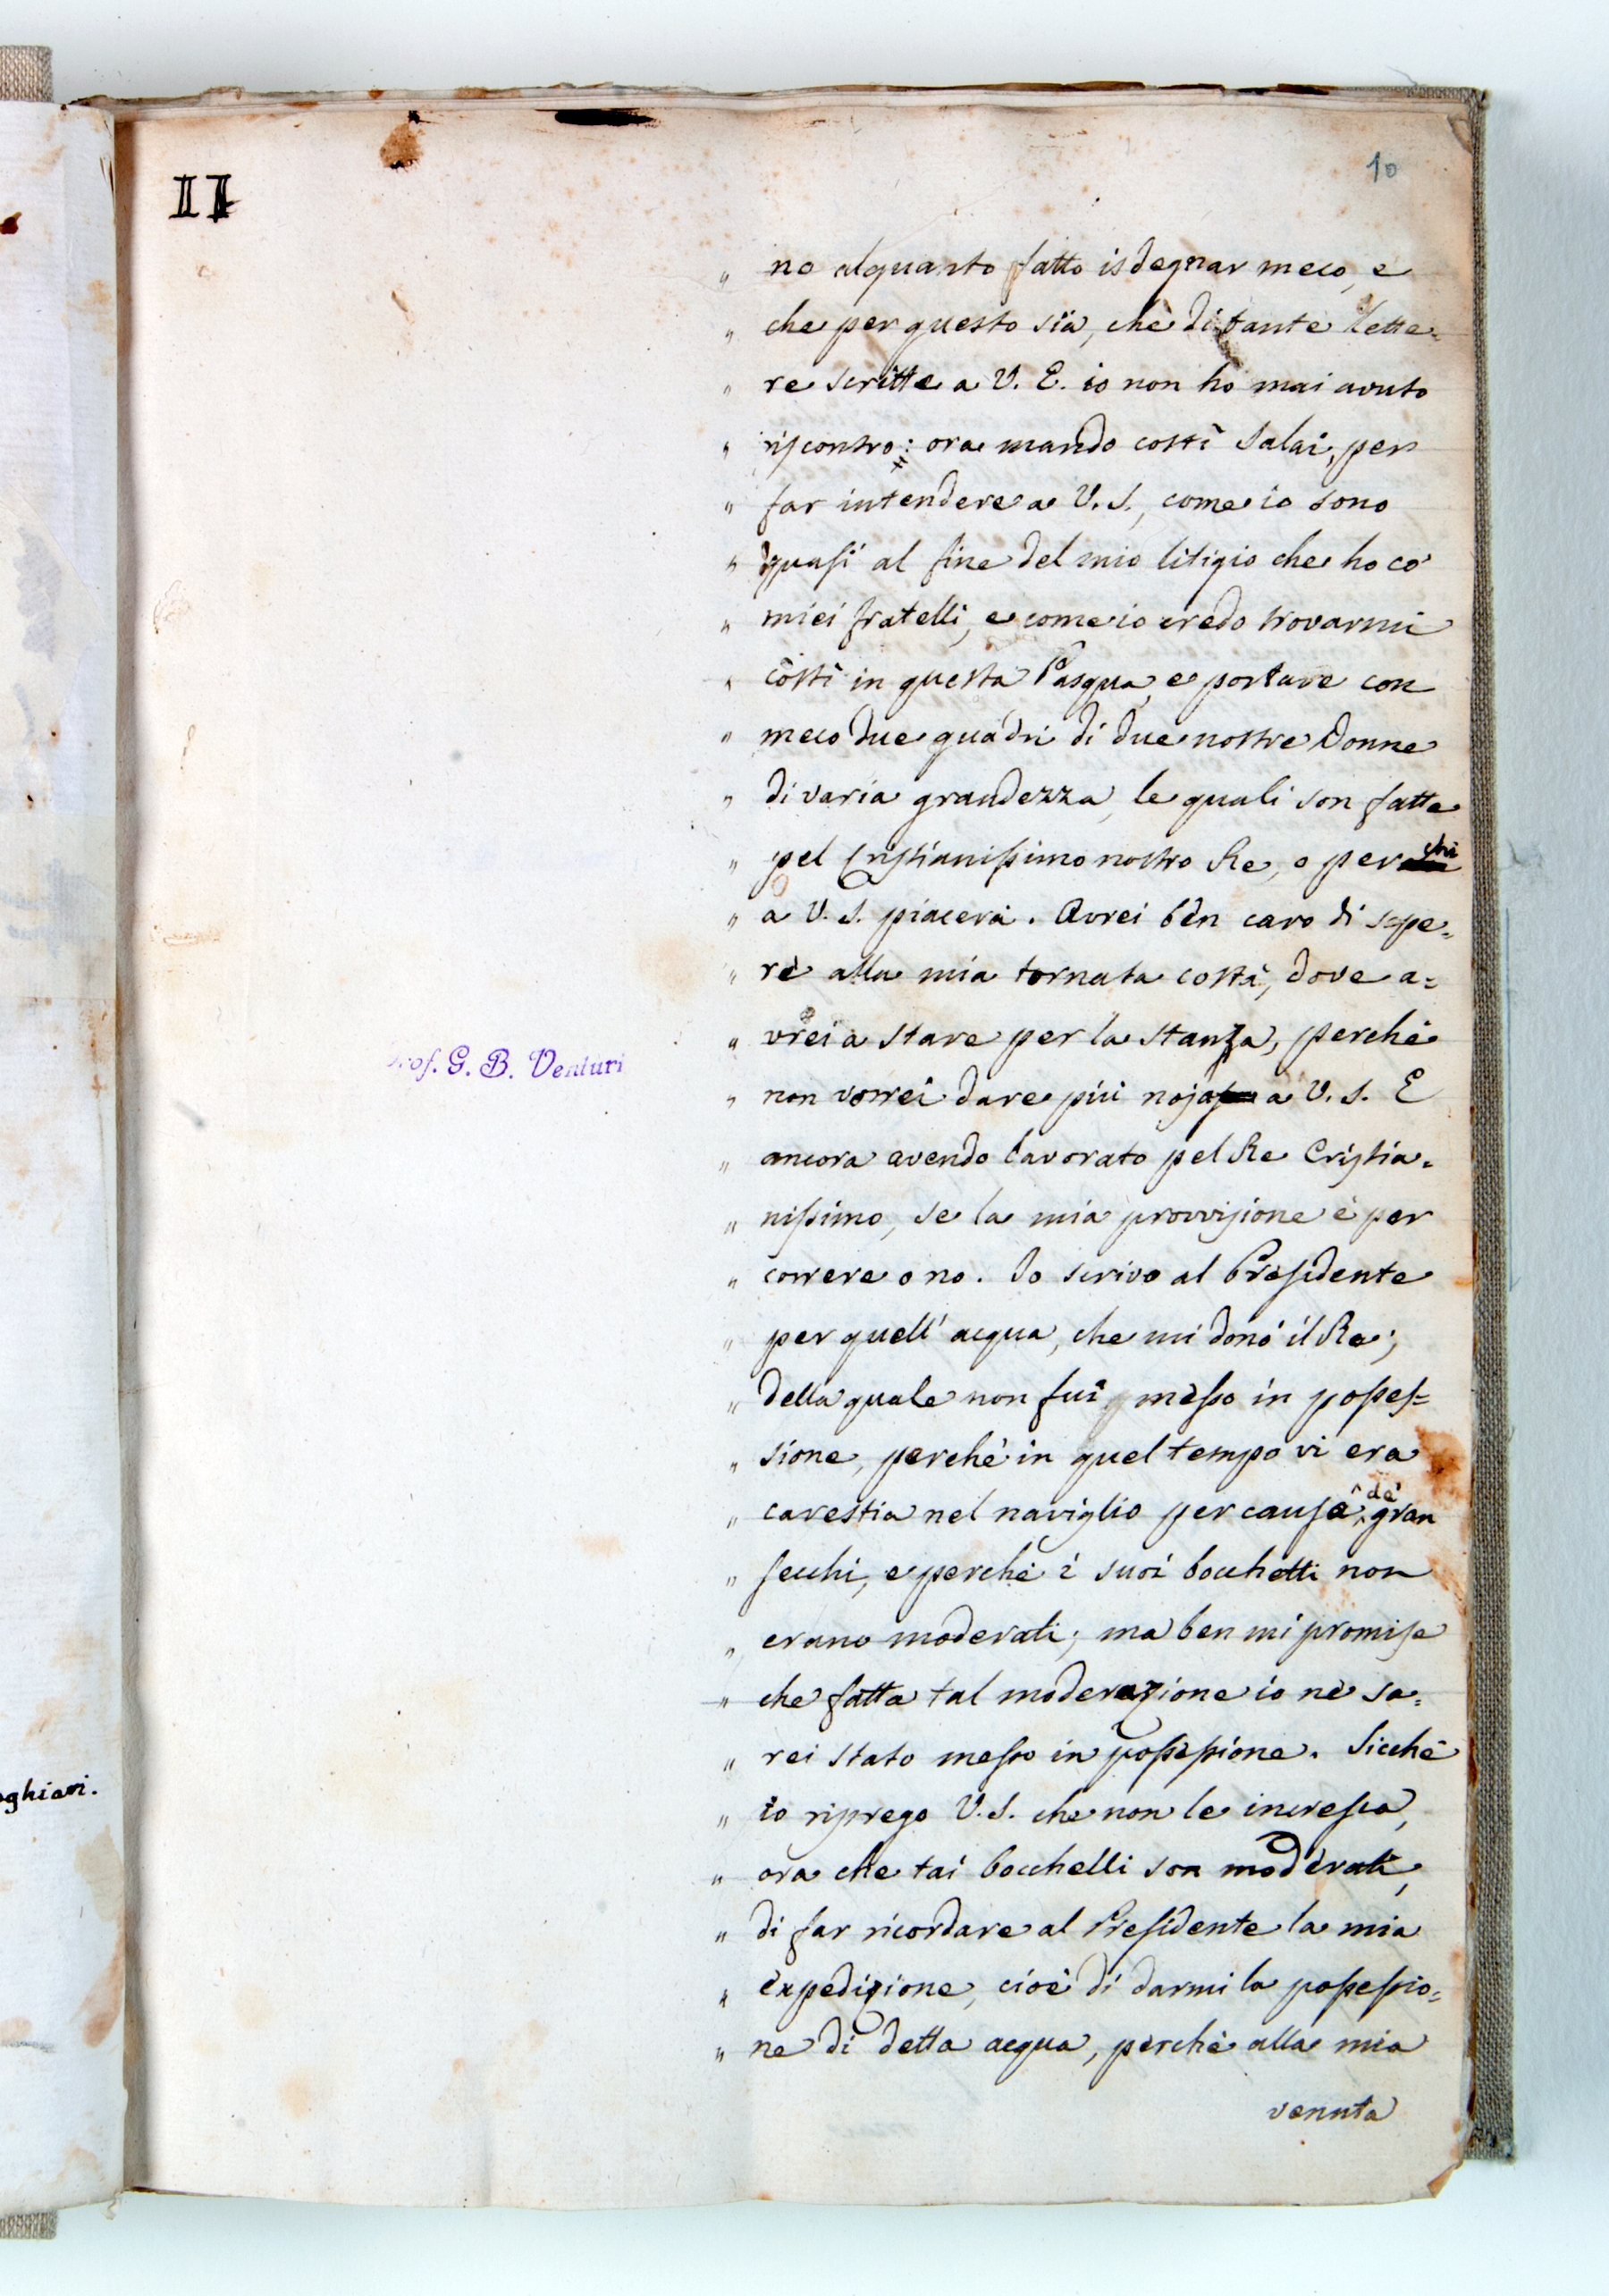 II
10
„ no alquanto fatto isdegnar meco, e
„ che per questo sia, che di tante lette=
„ re scritte a V. E. io non ho mai avuto
„ riscontro: ora mando costì Salai, per
„ far intendere a V. S., come io sono
„ quasi al fine del mio litigio che ho co'
„ miei fratelli, e come io credo trovarmi
„ costì in questa Pasqua, e portare con
„ meco due quadri di due nostre Donne
„ di varia grandezza, le quali son fatte
„ pel Cristianissimo nostro Re, o per chi
„ a V. S. piacerà. Avrei ben caro di sape=
„ re alla mia tornata costà, dove a=
„ vrei a stare per la stanza, perchè
„ non vorrei dare più noja a V. S. E
„ ancora avendo lavorato pel Re Cristia=
„ nissimo, se la mia provvisione è per
„ correre o no. Io scrivo al Presidente
„ per quell' acqua, che mi donò il Re;
„ della quale non fui messo in posses=
„ sione, perchè in quel tempo vi era
„ carestia nel naviglio per causa de' gran
„ secchi, e perchè i suoi bocchelli non
„ erano moderati; ma ben mi promise
„ che fatta tal moderazione io ne sa=
„ rei stato messo in possessione. Sicchè
„ io riprego V. S. che non le incresca,
„ ora che tai bocchelli son moderati,
„ di far ricordare al Presidente la mia
„ expedizione, cioè di darmi la possessio=
„ ne di detta acqua, perchè alla mia
venuta
Prof. G. B. Venturi
ghiari.